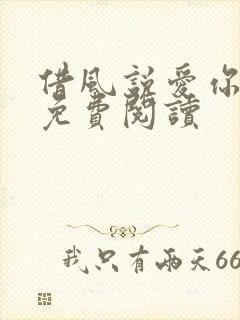 借風說愛你
免費閱讀
我只有兩天66